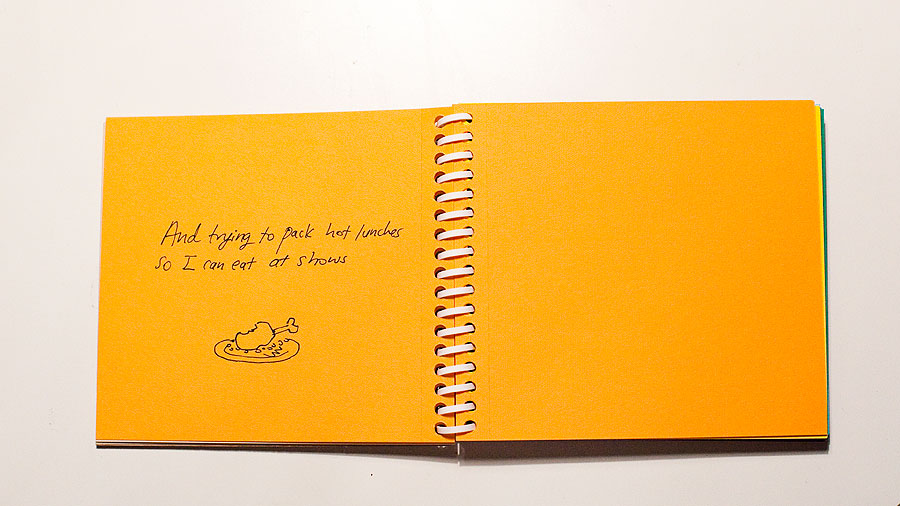 And trying to pack hot lunches
so I can eat at shows